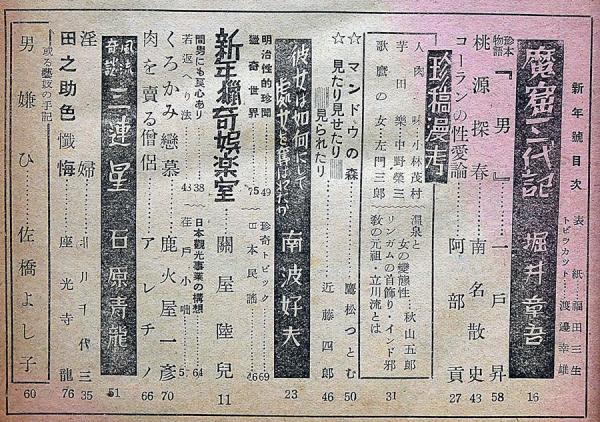 新年號目次
表紙……福田三生
トビツカット……渡邊幸雄
魔窟二代記 堀井章吾 16
珍本物語『男』……一戸昇 58
桃源探春……南名散史 43
コーランの性愛論……阿部貢 27
珍稿漫考
人肉の味……小林茂村
芋田樂……中野榮三
歌麿の女……左門三郎
温泉と女の變態性……秋山五郎
リンガムの首飾り・インド邪教の元祖・立川流とは
31
☆マンドウの森……鷹松つとむ 50
☆見たり見せたり見られたり……近藤四郎 46
彼女は如何にして處女を奪はれたか 南波好夫 23
明治性的珍聞……49
獵奇世界……75
珍奇トピック……69
日本民謡……26
新年獵奇娯楽室……關屋陸兒 11
間男にも良心あり……38
若返へり法……43
日本觀光事業の構想……64
江戸小咄……5
くろかみ戀慕……鹿火屋一彦 70
肉を賣る僧侶……アレチノ 66
風流奇談 三連星 石原青龍 51
淫婦……北川千代三 35
田之助色懺悔……座光寺龍 76
或る藝妓の手記
男嫌ひ……佐橋よし子 60